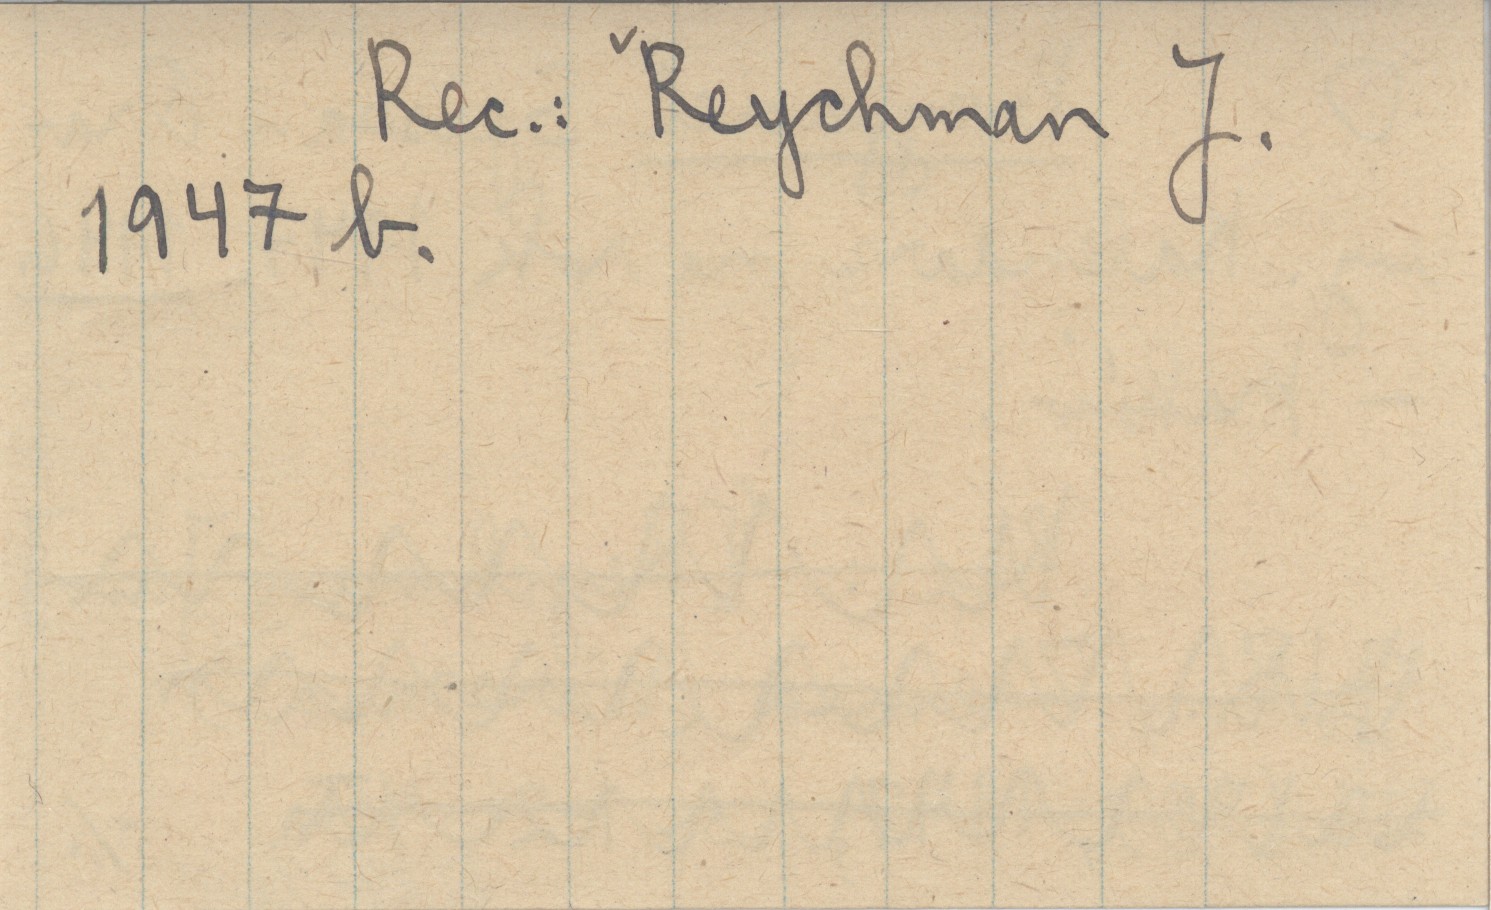 Rec.: ˇReychman J.
1947 b.